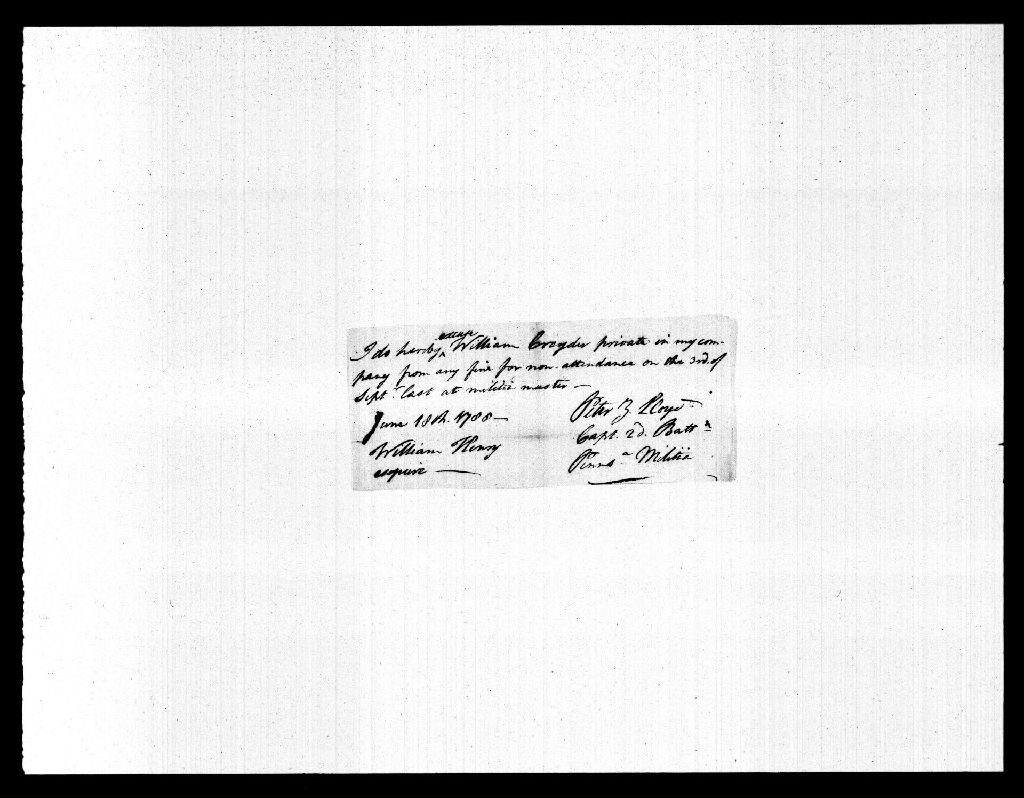 I do hereby excuse William Croyder private in my com-
pany from any fine for non-attendance on the 3rd of
Sept. last at militia muster —
June 18th. 1788 —
William Henry
esquire —
Peter Z Lloyd
Capt. 2d. Battn
Pennsa Militia